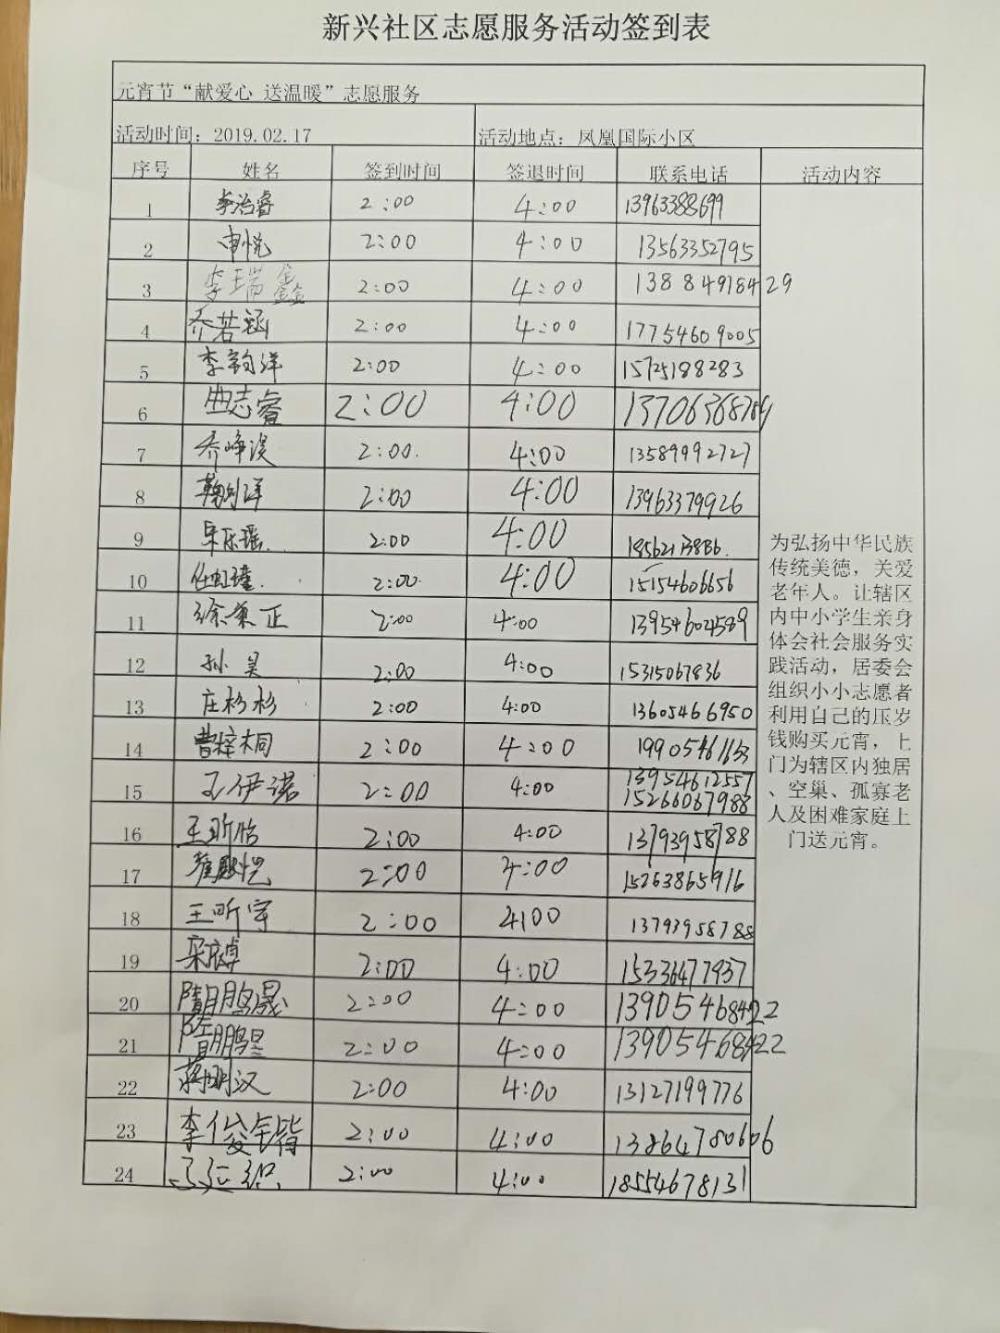 新兴社区志愿服务活动签到表
元宵节“献爱心 送温暖”志愿服务
活动时间：2019.02.17 活动地点：凤凰国际小区
序号 姓名 签到时间 签退时间 联系电话 活动内容
1 李治睿 2:00 4:00 13963388699
2 申悦 2:00 4:00 13563352795
3 李瑞鑫 2:00 4:00 13884918429
4 乔若涵 2:00 4:00 17754609005
5 李韵洋 2:00 4:00 15725188283
6 曲志睿 2:00 4:00 13706368789
7 乔峥淏 2:00. 4:00 13589992727
8 2:00 4:00 13963379926
9 2:00 4:00
10 任虹瑾. 2:00. 4:00 15154606656
11 徐秉正 2:00 4:00 13954604589
12 孙昊 2:00 4:00 15315067836
13 庄杉杉 2:00 4:00 13605466950
14 曹梓桐 2:00 4:00 19905461653
15 王伊诺 2:00 4:00 13954612557
15266067988
16 王昕怡 2:00 4:00 13793958788
17 2:00 4:00 15263865916
18 王昕宇 2:00 4:00 13793958788
19 2:00 4:00 15336477937
20 隋鹏晟 2:00 4:00 13905468422
21 隋鹏昱 2:00 4:00 13905468422
22 蒋明汉 2:00 4:00 13127199776
23 李俊锴 2:00 4:00 13864780606
24 2:00 4:00 18554678131
为弘扬中华民族
传统美德，关爱
老年人。让辖区
内中小学生亲身
体会社会服务实
践活动，居委会
组织小小志愿者
利用自己的压岁
钱购买元宵，上
门为辖区内独居
、空巢、孤寡老
人及困难家庭上
门送元宵。